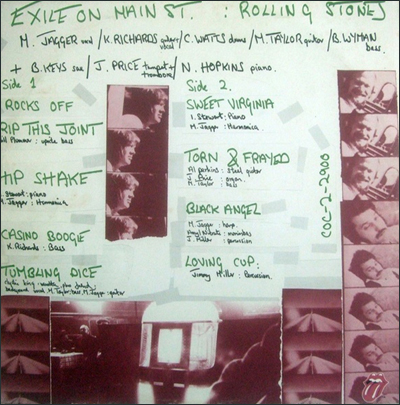 EXILE ON MAIN ST. : ROLLING STONES
M. JAGGER vocal / K. RICHARDS guitar vocal / C. WATTS drums / M. TAYLOR guitar / B. WYMAN bass.
+ B. KEYS sax / J. PRICE trumpet + trombone / N. HOPKINS piano.
Side 1
ROCKS OFF
RIP THIS JOINT
bass
HIP SHAKE
Stewart: piano
M. Jagger: Harmonica
CASINO BOOGIE
K. Richards: Bass
TUMBLING DICE
M. Taylor: bass, M. Jagger: guitar
Side 2.
SWEET VIRGINIA
I. Stewart: Piano
M. Jagger: Harmonica
TORN & FRAYED
Al perkins: steel guitar
J. Price: organ.
M. Taylor: bass
BLACK ANGEL
M. Jagger: harp
marimbas
J. Miller: percussion
LOVING CUP:
Jimmy Miller: Percussion.
COC-2-2900